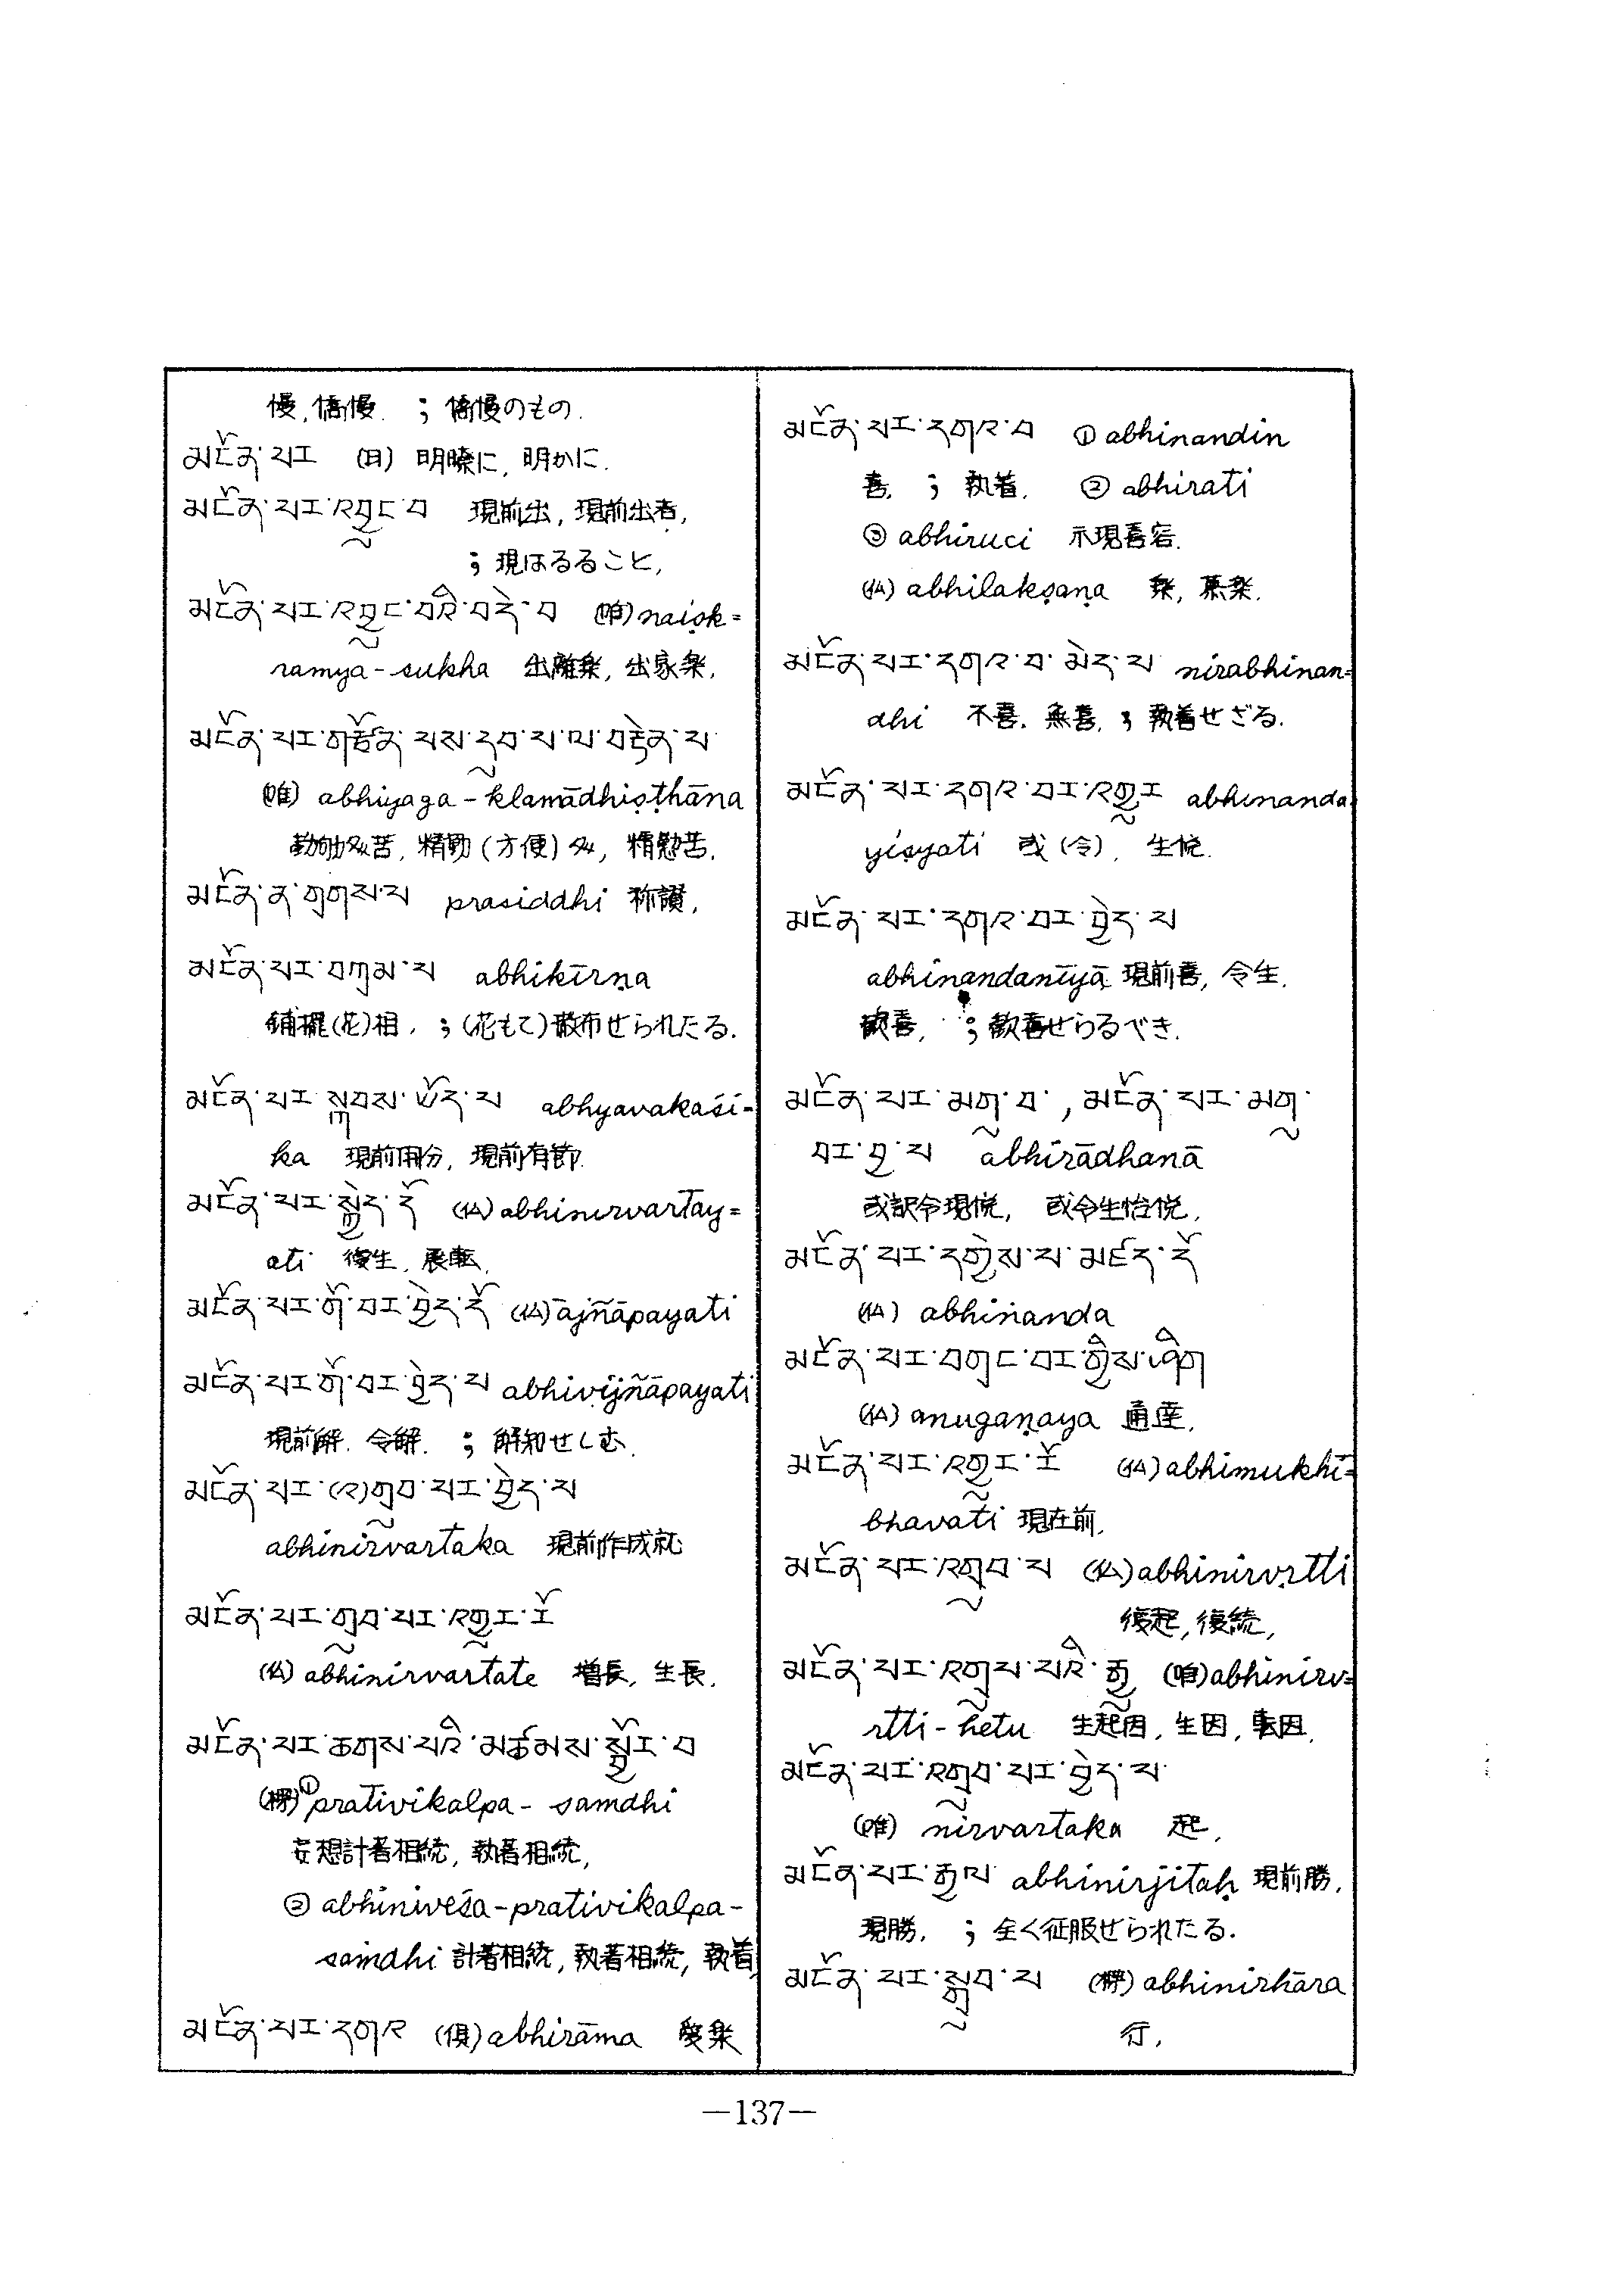 慢, 憍慢. ; 憍慢のもの.
མངོན་པར (日) 明瞭に, 明かに.
མངོན་པར་འབྱུང་བ 現前出, 現前出者,
; 現はるること,
མངོན་པར་འབྱུང་བའི་བདེ་བ (唯) naiṣk=
ramya-sukha 出離楽, 出家楽.
མངོན་པར་བརྩོན་པས་དུབ་པ་ལ་བརྟེན་པ
(唯) abhiyaga-klamādhiṣṭhāna
苦, 精勤 (方便) , 精勉苦.
མངོན་ན་གྲགས་པ prasiddhi 称讃,
མངོན་པར་བཀྲམ་པ abhikīrṇa
鋪擺(花)相, ; (花もて)散布せられたる.
མངོན་པར་སྐབས་ཡོད་པ abhyavakaśi=
ka 現前用分, 現前有節.
མངོན་པར་སྐྱེད་དོ (仏) abhinirvartay=
ati 復生, 展転,
མངོན་པར་གོ་བར་བྱེད་དོ (仏) ājñāpayati
མངོན་པར་གོ་བར་བྱེད་པ abhivijñāpayati
現前解. 令解. ; 解知せしむ.
མངོན་པར་(འ)གྲུབ་པར་བྱེད་པ
abhinirvartaka 現前作成就
མངོན་པར་གྲུབ་པར་འགྱུར་རོ
(仏) abhinirvartate 増長, 生長.
མངོན་པར་ཆགས་པའི་མཚམས་སྦྱོར་བ
(楞)① prativikalpa-samdhi
妄想計著相続, 執著相続,
② abhiniveśa-prativikalpa-
saṁdhi 計著相続, 執著相続, 執着,
མངོན་པར་དགའ (倶) abhirāma 愛楽
མངོན་པར་དགའ་བ ① abhinandin
喜. ; 執着. ② abhirati
③ abhiruci 示現喜容.
(仏) abhilakṣaṇa 楽, 慕楽.
མངོན་པར་དགའ་བ་མེད་པ nirabhinan=
dhi 不喜. 無喜. ; 執着せざる.
མངོན་པར་དགའ་བར་འགྱུར abhinanda
yiṣyati 或 (令), 生悦.
མངོན་པར་དགའ་བར་བྱེད་པ
abhinandanīyā 現前喜, 令生.
歓喜, ; 歓喜せらるべき.
མངོན་པར་མགུ་བ་, མངོན་པར་མགུ་
བར་བྱ་པ abhirādhanā
或訳令現悦, 或令生怡悦,
མངོན་པར་དགྱེས་པ་མཛད་དོ
(仏) abhinanda
མངོན་པར་བགྲང་བར་གྱིས་ཤིག
(仏) anugaṇaya 通達,
མངོན་པར་འགྱུར་རོ (仏) abhimukhī=
bhavati 現在前,
མངོན་པར་འགྲུབ་པ (仏) abhinirvṛtti
復起, 復続,
མངོན་པར་འགྲུབ་པའི་རྒྱུ (唯) abhinirv=
ṛtti-hetu 生起因, 生因, 転因,
མངོན་པར་འགྲུབ་པར་བྱེད་པ་
(唯) nirvartaka 起,
མངོན་པར་རྒྱལ abhinirjitaḥ 現前勝,
現勝. ; 全く征服せられたる.
མངོན་པར་སྒྲུབ་པ (楞) abhinirhāra
行,
—137—